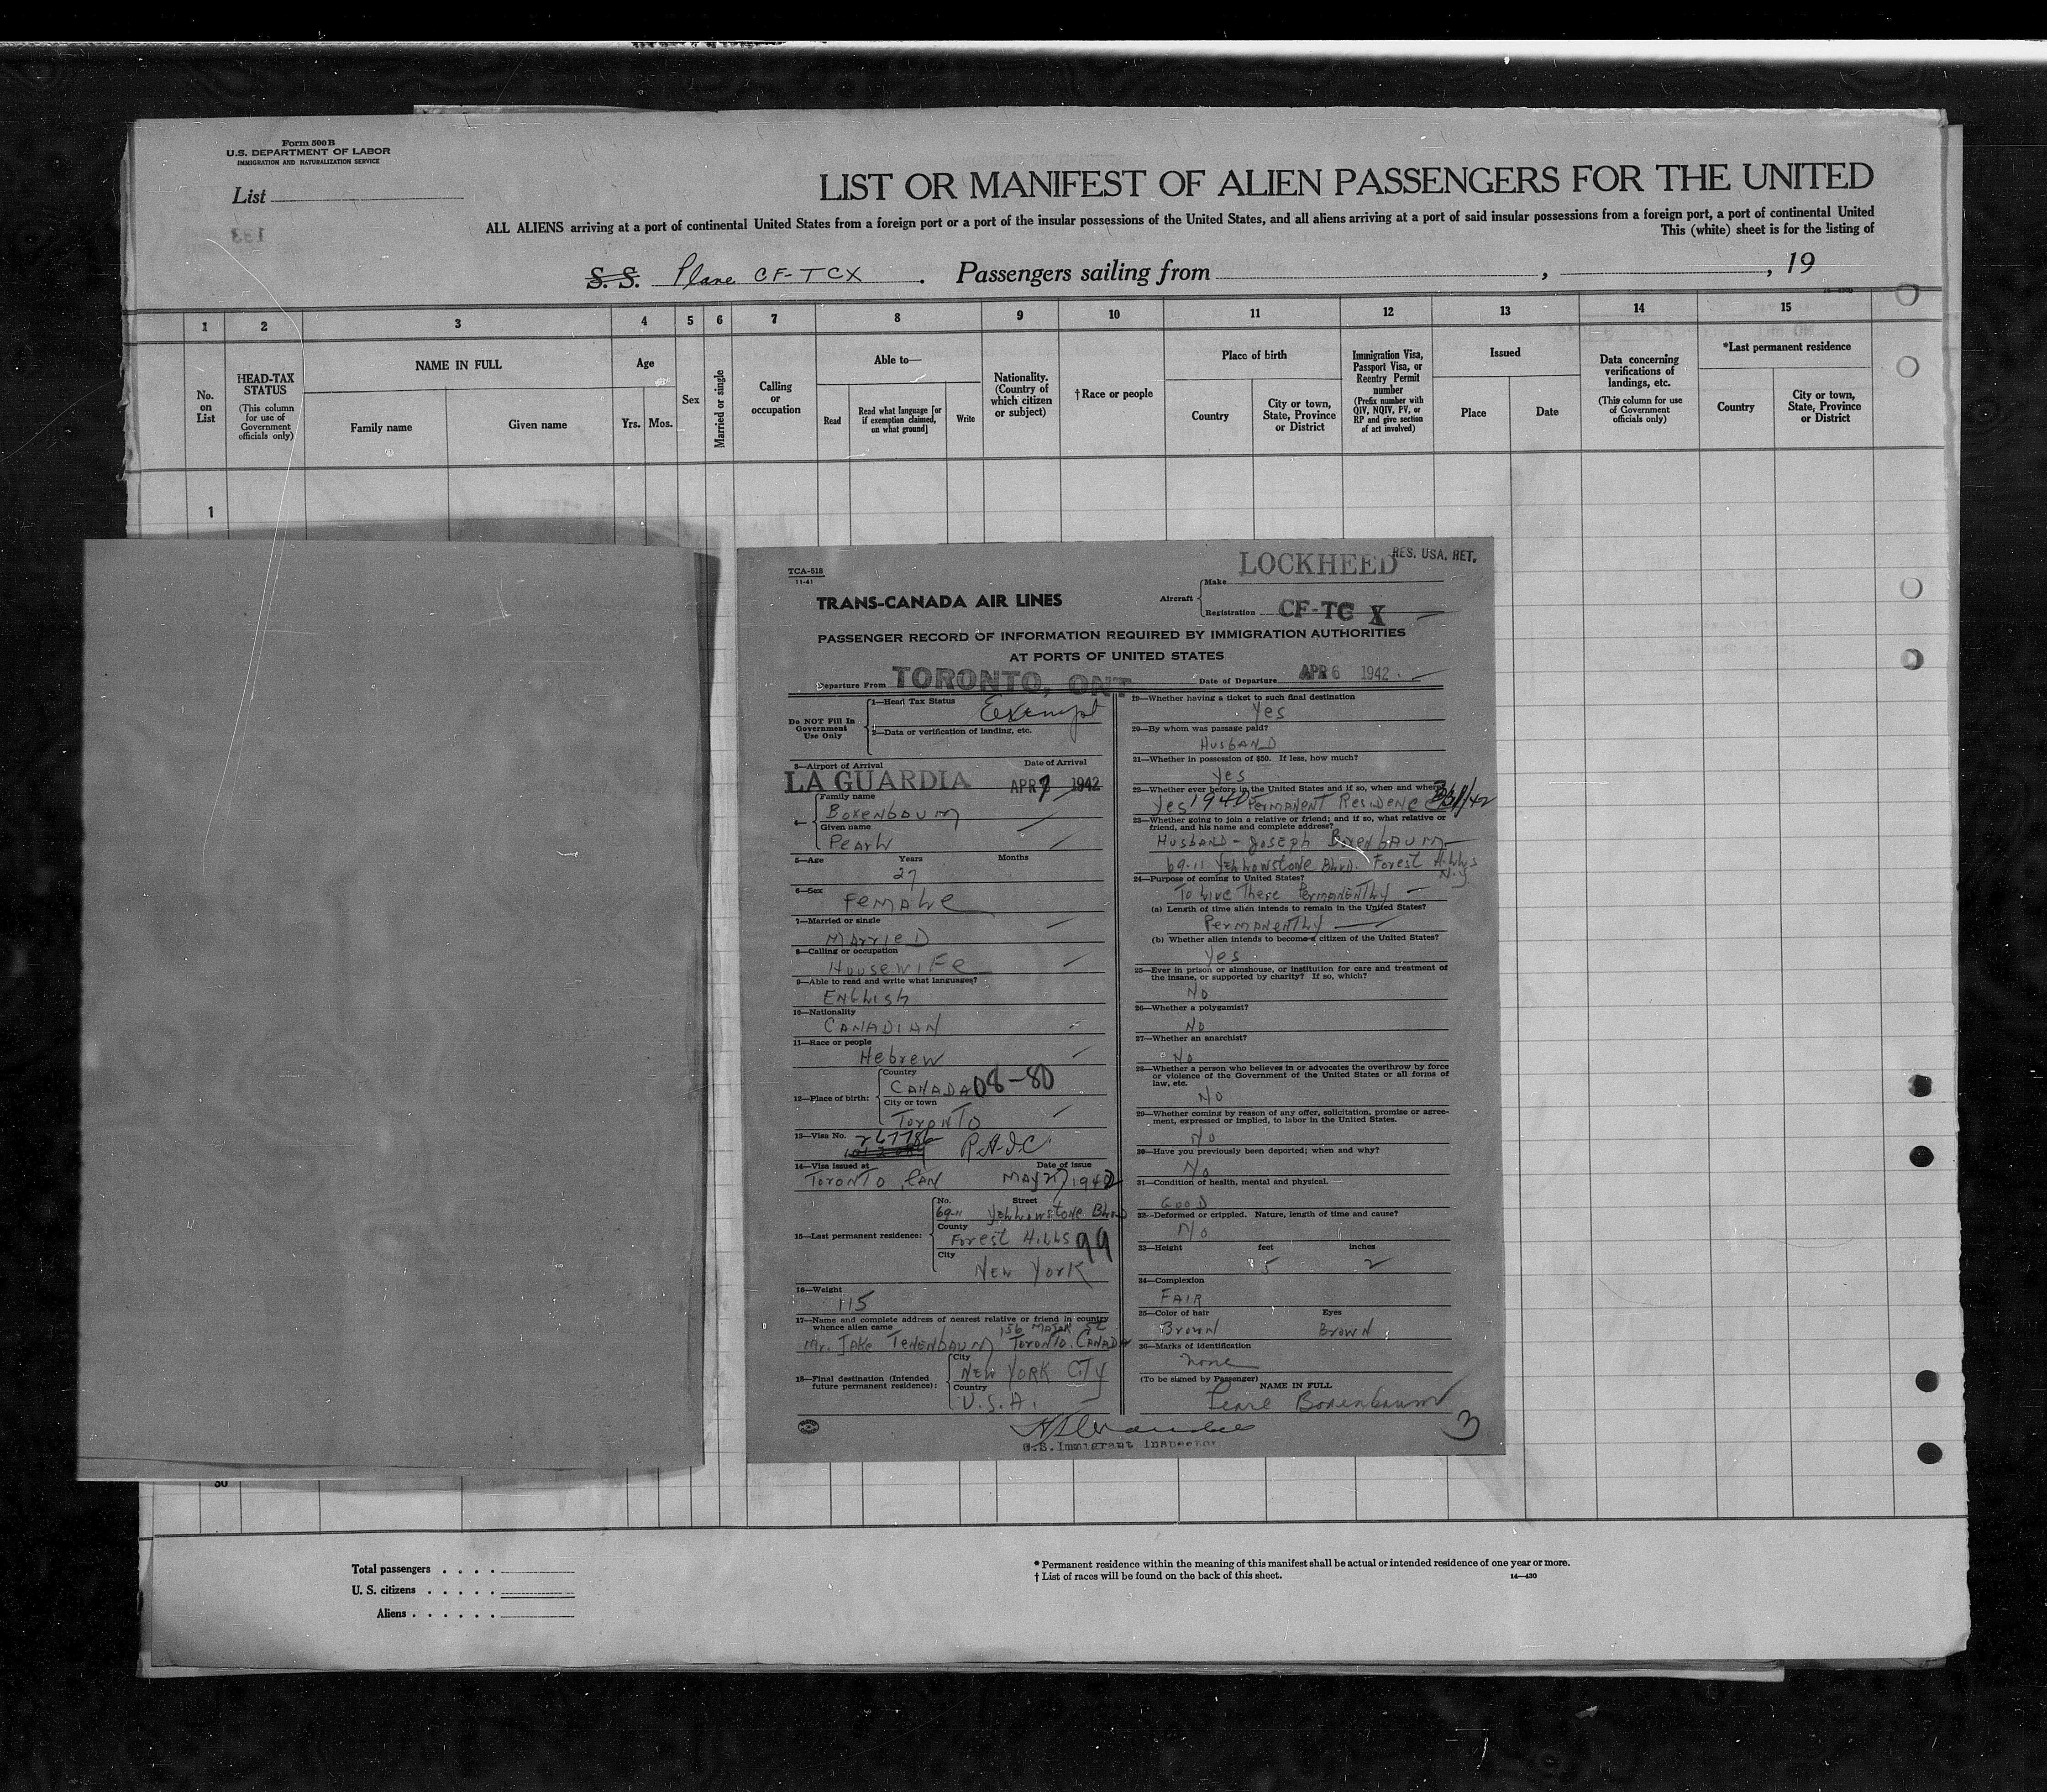 Form 500 B
U.S. DEPARTMENT OF LABOR
IMMIGRATION AND NATURALIZATION SERVICE
List
LIST OR MANIFEST OF ALIEN PASSENGERS FOR THE UNITED
ALL ALIENS arriving at a port of continental United States from a foreign port or a port of the insular possessions of the United States, and all aliens arriving at a port of said insular possessions from a foreign port, a port of continental United
This (white) sheet is for the listing of
S. S. Plane CF-TCX . Passengers sailing from , , 19
1 2 3 4 5 6 7 8 9 10 11 12 13 14 15
No. on List
HEAD-TAX STATUS
(This column for use of Government officials only)
NAME IN FULL
Family name Given name
Age
Yrs. Mos.
Sex
Married or single
Calling or occupation
Able to—
Read
Read what language [or if exemption claimed, on what ground]
Write
Nationality. (Country of which citizen or subject)
† Race or people
Place of birth
Country
City or town, State, Province or District
Immigration Visa, Passport Visa, or Reentry Permit number
(Prefix number with QIV, NQIV, PV, or RP and give section of act involved)
Issued
Place Date
Data concerning verifications of landings, etc.
(This column for use of Government officials only)
*Last permanent residence
Country
City or town, State, Province or District
1
TCA-518
11-41
LOCKHEED
RES. USA. RET.
TRANS-CANADA AIR LINES
Aircraft
Make
Registration CF-TC X
PASSENGER RECORD OF INFORMATION REQUIRED BY IMMIGRATION AUTHORITIES
AT PORTS OF UNITED STATES
Departure From TORONTO, ONT
Date of Departure APR 6 1942
Do NOT Fill In Government Use Only
1—Head Tax Status Exempt
2—Data or verification of landing, etc.
3—Airport of Arrival Date of Arrival
LA GUARDIA APR 7 1942
4—
Family name
Boxenbaum
Given name
Pearl
5—Age Years Months
27
6—Sex
Female
7—Married or single
Married
8—Calling or occupation
Housewife
9—Able to read and write what languages?
English
10—Nationality
Canadian
11—Race or people
Hebrew
12—Place of birth:
Country
Canada 08-80
City or town
Toronto
13—Visa No. 267786
14—Visa issued at Date of issue
Toronto, Can May 27, 1942
15—Last permanent residence:
No. Street
69-11 Yellowstone Blvd
County
Forest Hills 99
City
New York
16—Weight
115
17—Name and complete address of nearest relative or friend in country whence alien came
156 Major St.
Mr. Jake Tenenbaum Toronto, Canada
18—Final destination (Intended future permanent residence):
City
New York City
Country
U.S.A.
19—Whether having a ticket to such final destination
Yes
20—By whom was passage paid?
Husband
21—Whether in possession of $50. If less, how much?
Yes
22—Whether ever before in the United States and if so, when and where?
Yes 1940 Permanent Residence
23—Whether going to join a relative or friend; and if so, what relative or friend, and his name and complete address?
Husband - Joseph Boxenbaum
69-11 Yellowstone Blvd. Forest Hills
N.Y.
24—Purpose of coming to United States?
To Live There Permanently
(a) Length of time alien intends to remain in the United States?
Permanently
(b) Whether alien intends to become a citizen of the United States?
Yes
25—Ever in prison or almshouse, or institution for care and treatment of the insane, or supported by charity? If so, which?
No
26—Whether a polygamist?
No
27—Whether an anarchist?
No
28—Whether a person who believes in or advocates the overthrow by force or violence of the Government of the United States or all forms of law, etc.
No
29—Whether coming by reason of any offer, solicitation, promise or agreement, expressed or implied, to labor in the United States.
No
30—Have you previously been deported; when and why?
No
31—Condition of health, mental and physical.
Good
32—Deformed or crippled. Nature, length of time and cause?
No
33—Height feet inches
5 2
34—Complexion
Fair
35—Color of hair Eyes
Brown Brown
36—Marks of identification
none
(To be signed by Passenger)
NAME IN FULL
Pearl Boxenbaum
3
U.S. Immigrant Inspector
30
Total passengers . . . .
U. S. citizens . . . . .
Aliens . . . . . .
* Permanent residence within the meaning of this manifest shall be actual or intended residence of one year or more.
† List of races will be found on the back of this sheet.
14—430